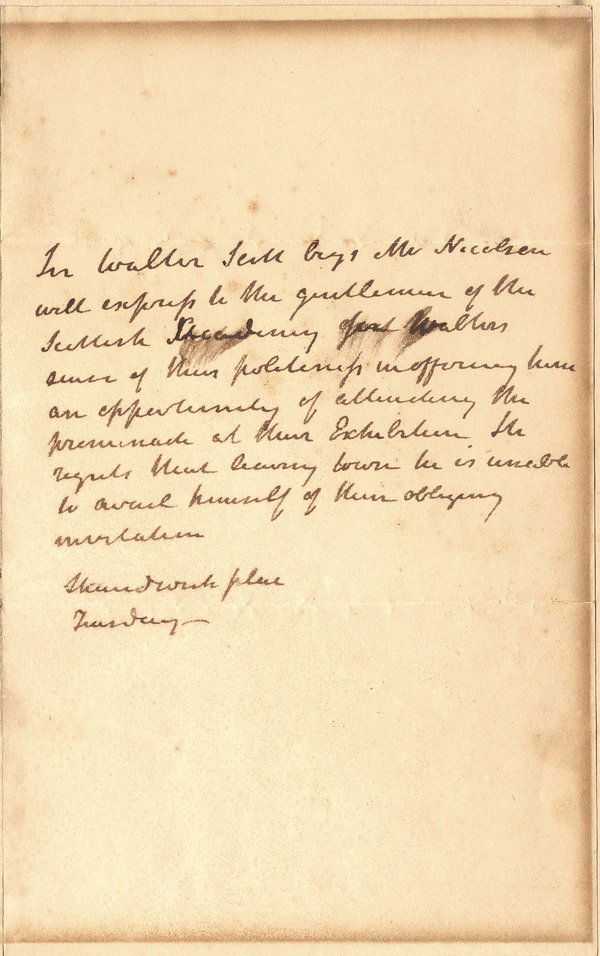 Sir Walter Scott begs Mr Nicolson
will express to the gentlemen of the
Scottish Academy Sir Walters
sense of their politeness in offering him
an opportunity of attending the
promenade at their Exhibition He
regrets that leaving town he is unable
to avail himself of their obliging
invitation
Shandwick place
Tuesday—